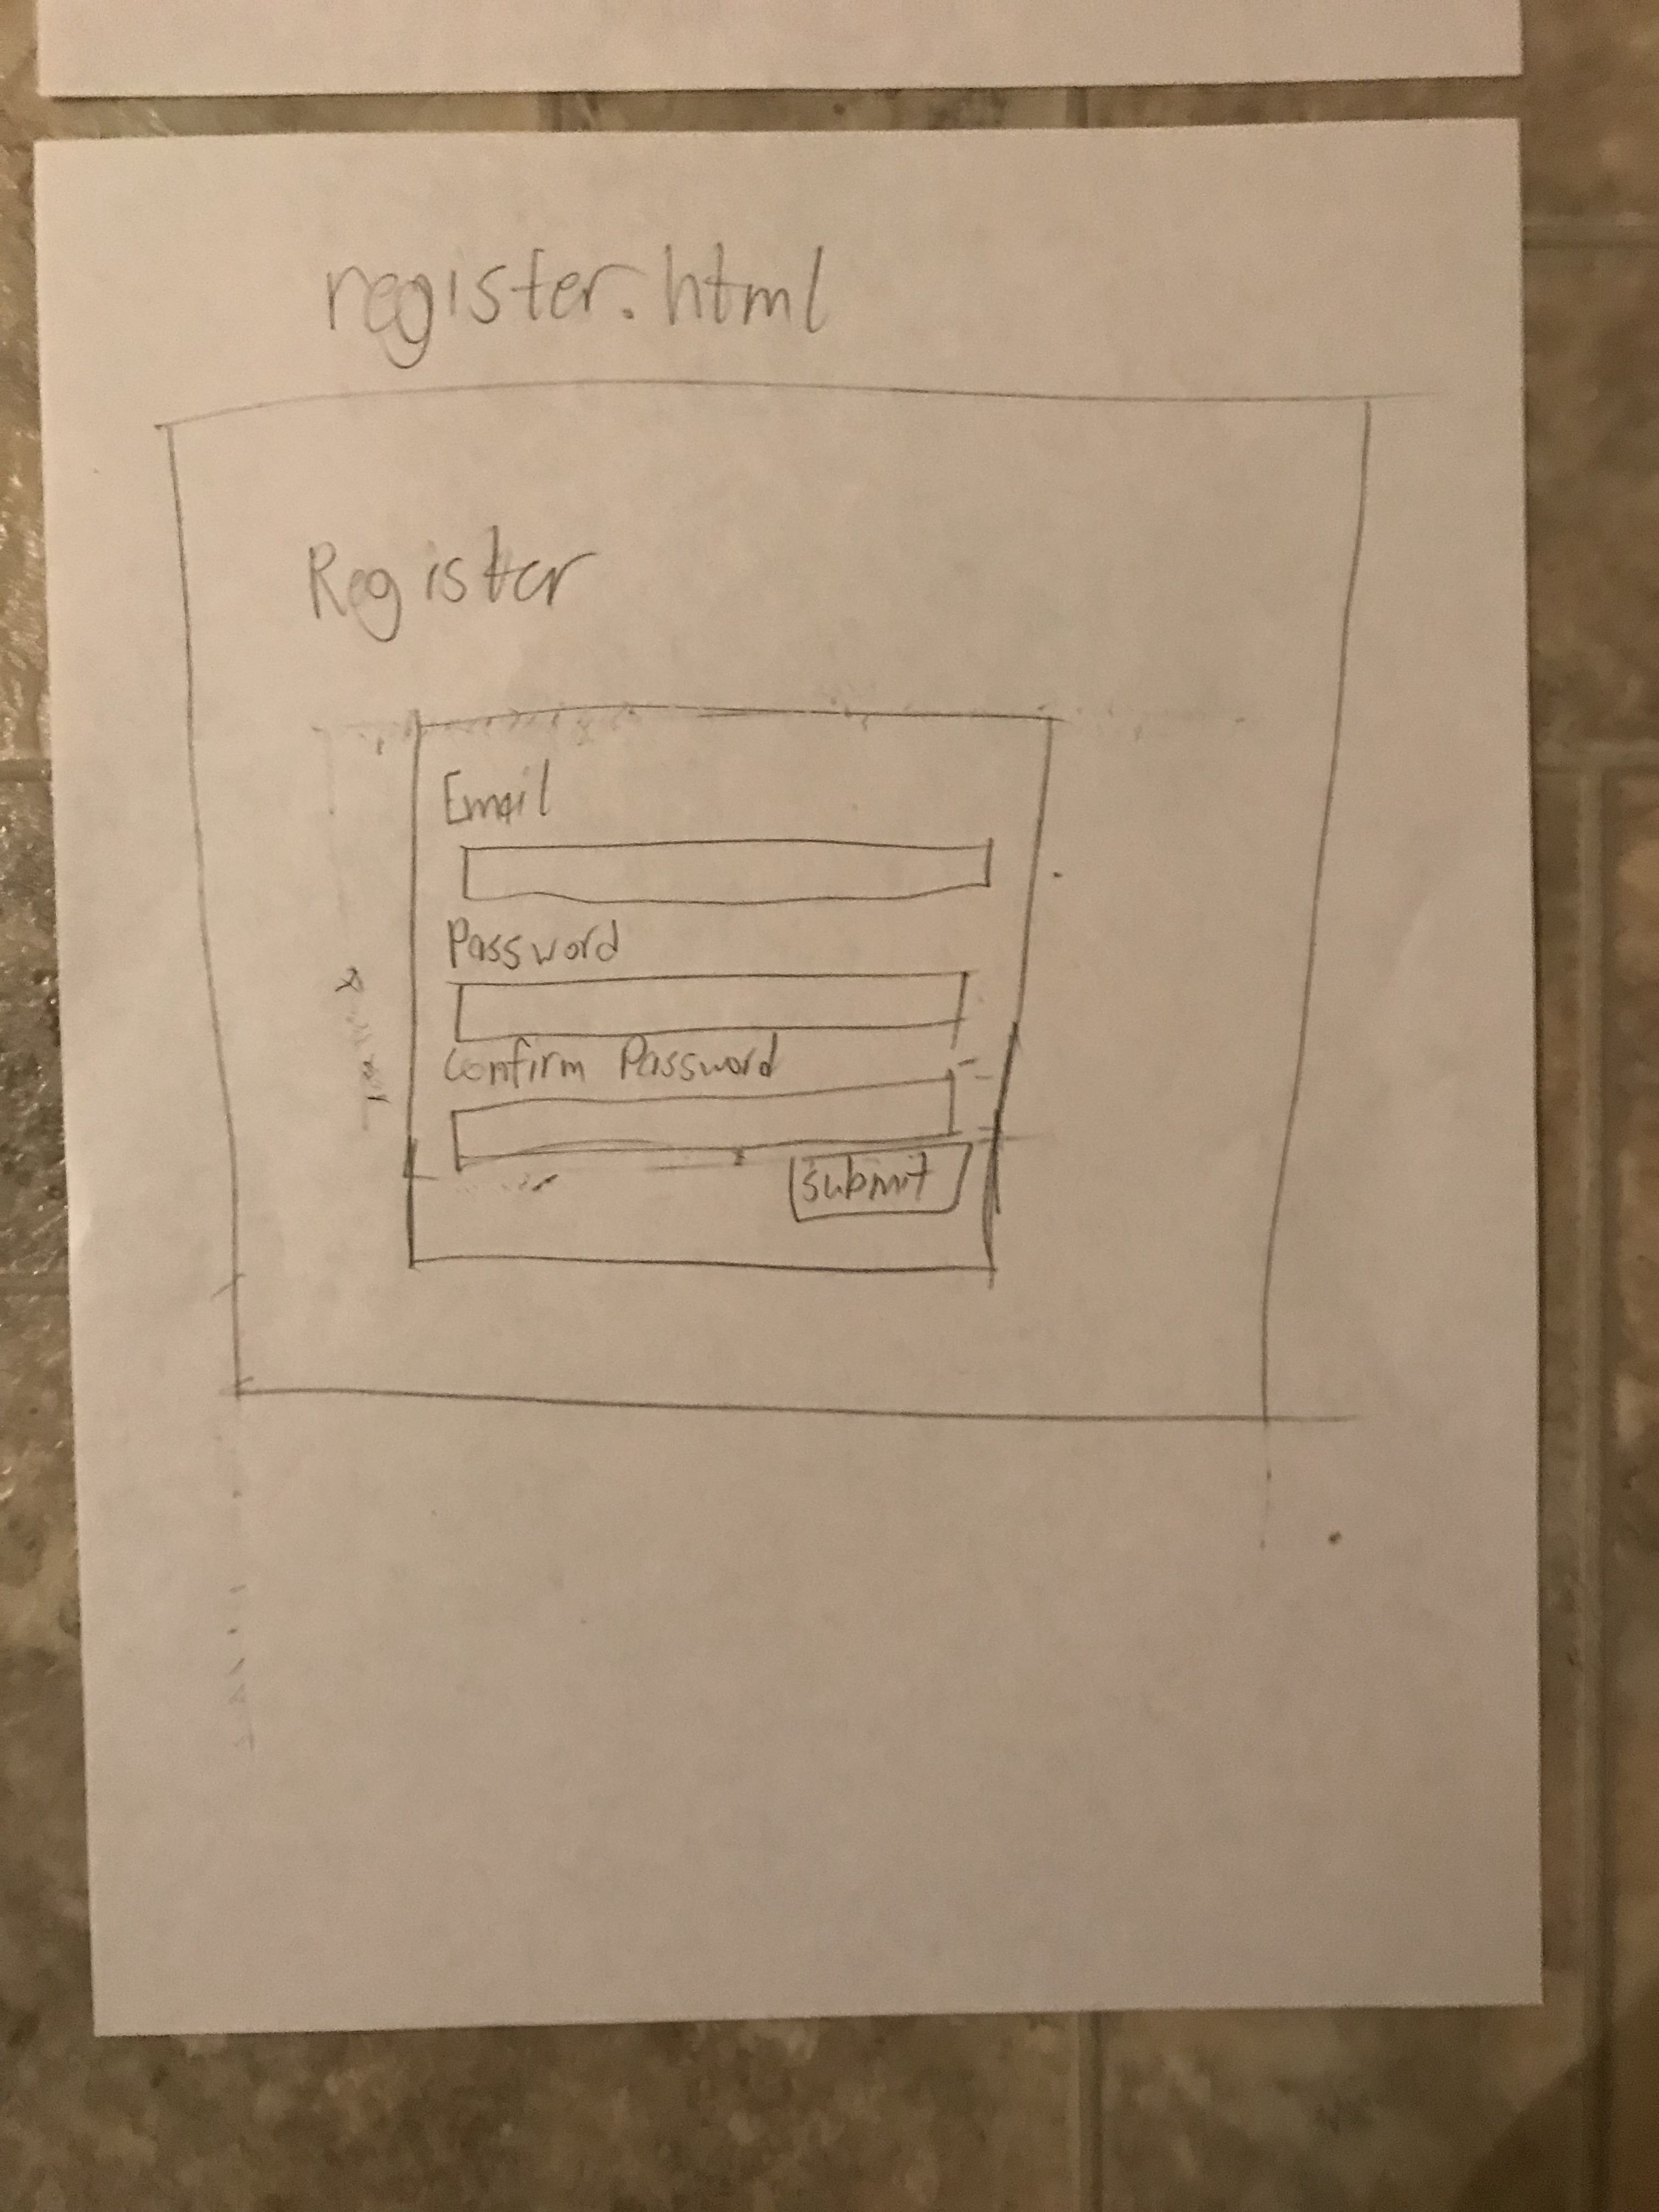 register.html
Register
Email
Password
Confirm Password
submit